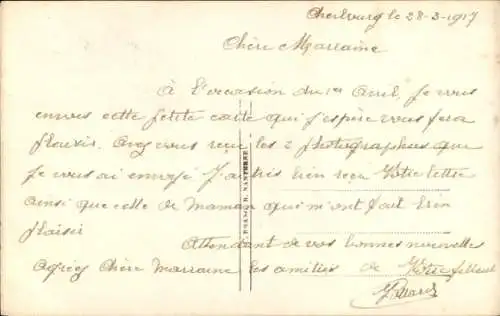 Cherbourg le 28-3-1917
Chère Marraine
À l'occasion du 1er Avril, je vous
envois cette petite carte qui j'espère vous fera
plaisir. Avez vous reçu les 2 photographies que
je vous ai envoyé J'ai très bien reçu Votre lettre
ainsi que celle de maman qui m'ont fait bien
plaisir
Attendant de vos bonnes nouvelles
agréez chère marraine les amitiés de Votre filleul